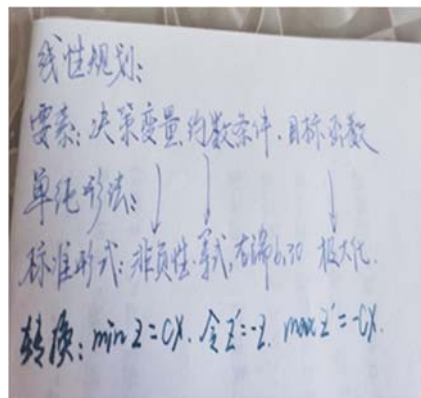 线性规划:
要素:决策变量.约数条件.目标函数
单纯形法:
标准形式:非负性.等式,右端bi≥0 极大化.
转换:min Z=CX.令Z'=-Z. max Z'=-CX.